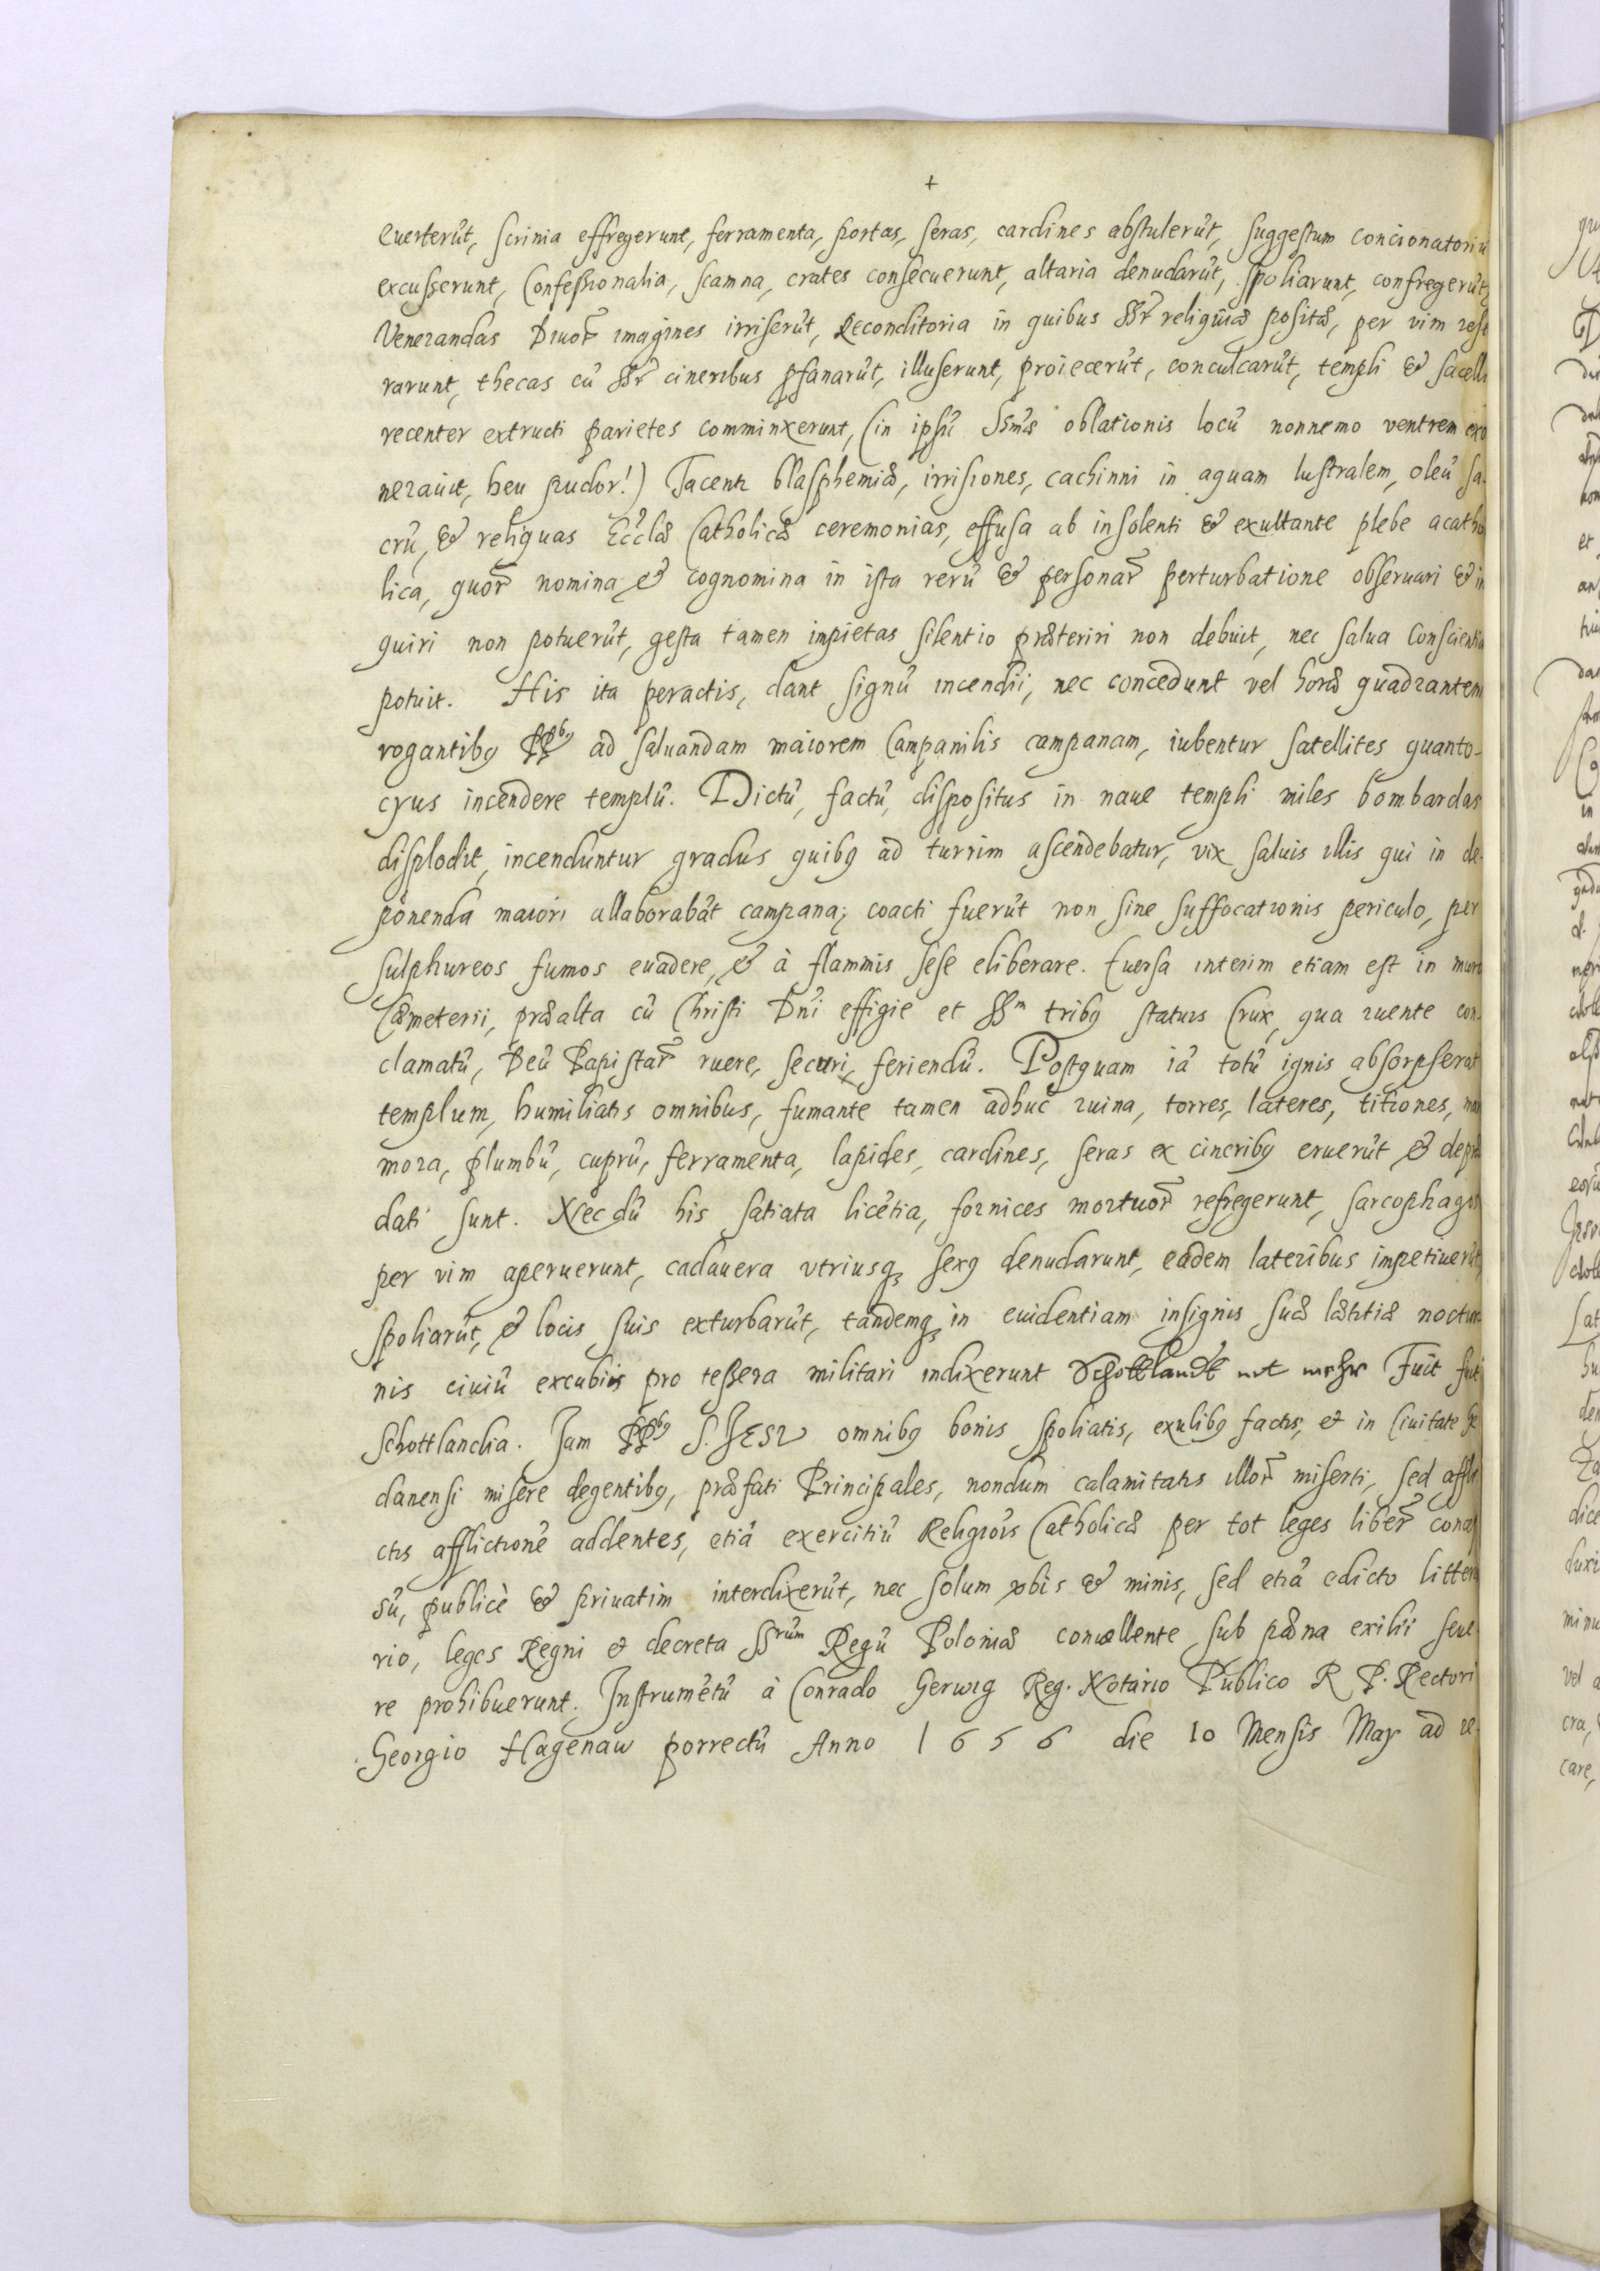 +
euerterūt, scrinia effregerunt, ferramenta, portas, seras, cardines abstulerūt, suggestum concionatoriū
excusserunt, Confessionalia, scamna, crates consecuerunt, altaria denudarūt, spoliarunt, confregerūt,
Venerandas Diuor̃ imagines irriserūt, Reconditoria in quibus SSr̃ reliquiæ positæ, per vim rese
rarunt, thecas cū SSr̃ cineribus pfanarūt, illuserunt, proiecerūt, conculcarūt, templi & sacelli
recenter extructi parietes comminxerunt, (in ipsū SSmæ oblationis locū nonnemo ventrem exo
nerauit, heu pudor!) Tacentr blasphemiæ, irrisiones, cachinni in aquam lustralem, oleū sa-
crū, & reliquas Eccłæ Catholicæ ceremonias, effusa ab insolenti & exultante plebe acatho
lica, quor̃ nomina & cognomina in ista rerū & personar̃ perturbatione obseruari & in
quiri non potuerūt, gesta tamen impietas silentio præteriri non debuit, nec salua Conscientia
potuit. His ita peractis, dant signū incendii, nec concedunt vel horæ quadrantem
rogantibq PPbq ad saluandam maiorem Campanilis campanam, iubentur satellites quanto-
cyus incendere templū. Dictū, factū, dispositus in naue templi miles bombardas
displodit, incenduntur gradus quibq ad turrim ascendebatur, vix saluis illis qui in de-
ponenda maiori allaborabāt campana; coacti fuerūt non sine suffocationis periculo, per
sulphureos fumos euadere, & à flammis sese eliberare. Euersa interim etiam est in muro
Cæmeterii, præalta cū Christi Dn̄i effigie et SSm tribq statuis Crux, qua ruente con-
clamatū, Deū Papistar̃ ruere, securi feriendū. Postquam iā totū ignis absorpserat
templum, humiliatis omnibus, fumante tamen adhuc ruina, torres, lateres, titiones, mar
mora, plumbū, cuprū, ferramenta, lapides, cardines, seras ex cineribq eruerūt & depræ
dati sunt. Necdū his satiata licētia, fornices mortuor̃ refregerunt, sarcophagos
per vim aperuerunt, cadauera vtriusq sexq denudarunt, eadem lateribus impetiuerūt,
spoliarūt, & locis suis exturbarūt, tandemq in euidentiam insignis suæ lætitiæ noctur-
nis ciuiū excubiis pro tessera militari indixerunt Schottlandt nit mehr Fuit fuit
Schottlandia. Jam PPbq S. JESV omnibq bonis spoliatis, exulibq factis, et in Ciuitate Ge
danensi misere degentibq, præfati Principales, nondum calamitatis illor̃ miserti, sed affli
ctis afflictionē addentes, etiā exercitiū Religiois Catholicæ per tot leges liber̃ conces
sū, publicè & priuatim interdixerūt, nec solum vbis & minis, sed etiā edicto litter
rio, leges Regni et decreta SSrūm Regū Poloniæ conuellente sub pæna exilii seue
re prohibuerunt. Instrumētū à Conrado Gerwig Reg. Notario Publico R P. Rectori
Georgio Hagenaw porrectū Anno 1656 die 10 Mensis May ad re-